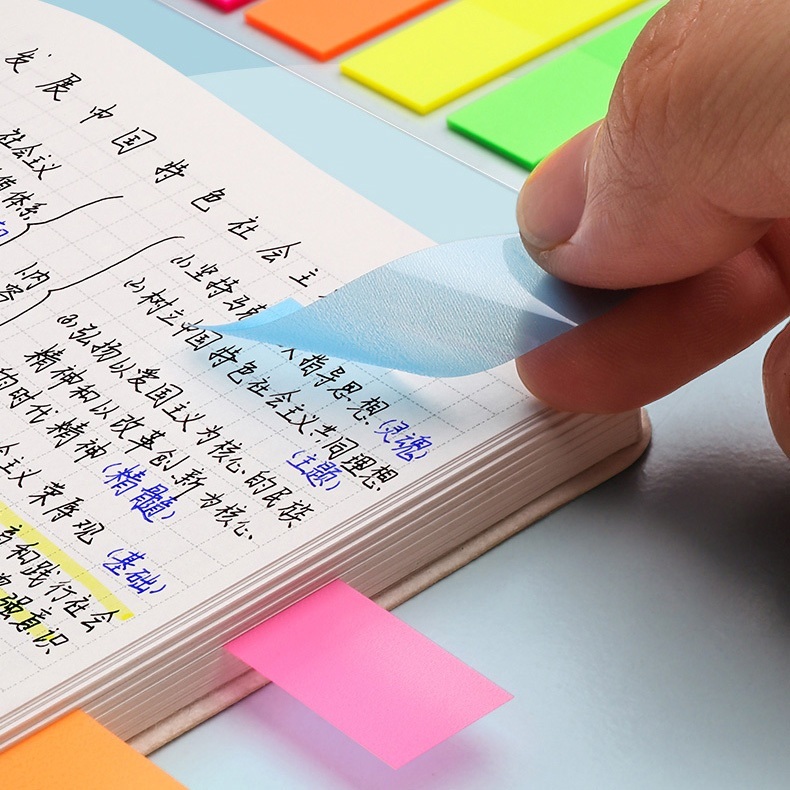 发展中国特色社会主
社会主义
值体系
内容
(1)坚持马 指导思想(灵魂)
(2)树立中国特色社会主义共同理想
(主题)
(3)弘扬以爱国主义为核心的民族
精神和以改革创新为核心
的时代精神(精髓)
会主义荣辱观(基础)
和践行社会
强意识